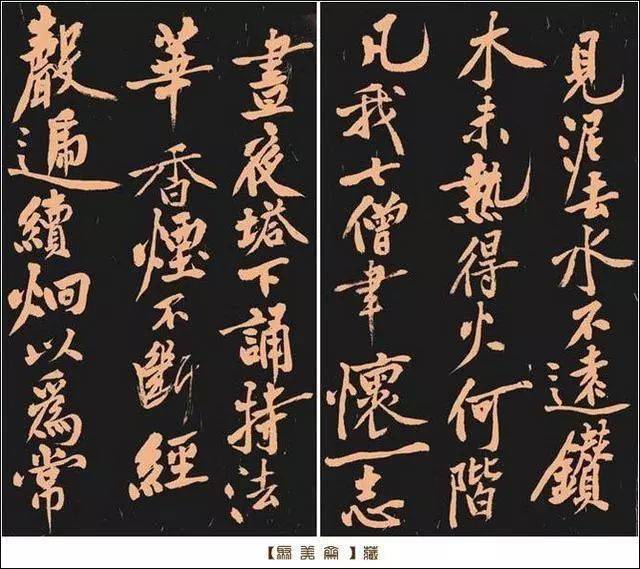 見泥去水不遠鑽
木未熱得火何階
凡我七僧聿懷一志
晝夜塔下誦持法
華香煙不斷經
聲遍續炯以爲常
【美】藏